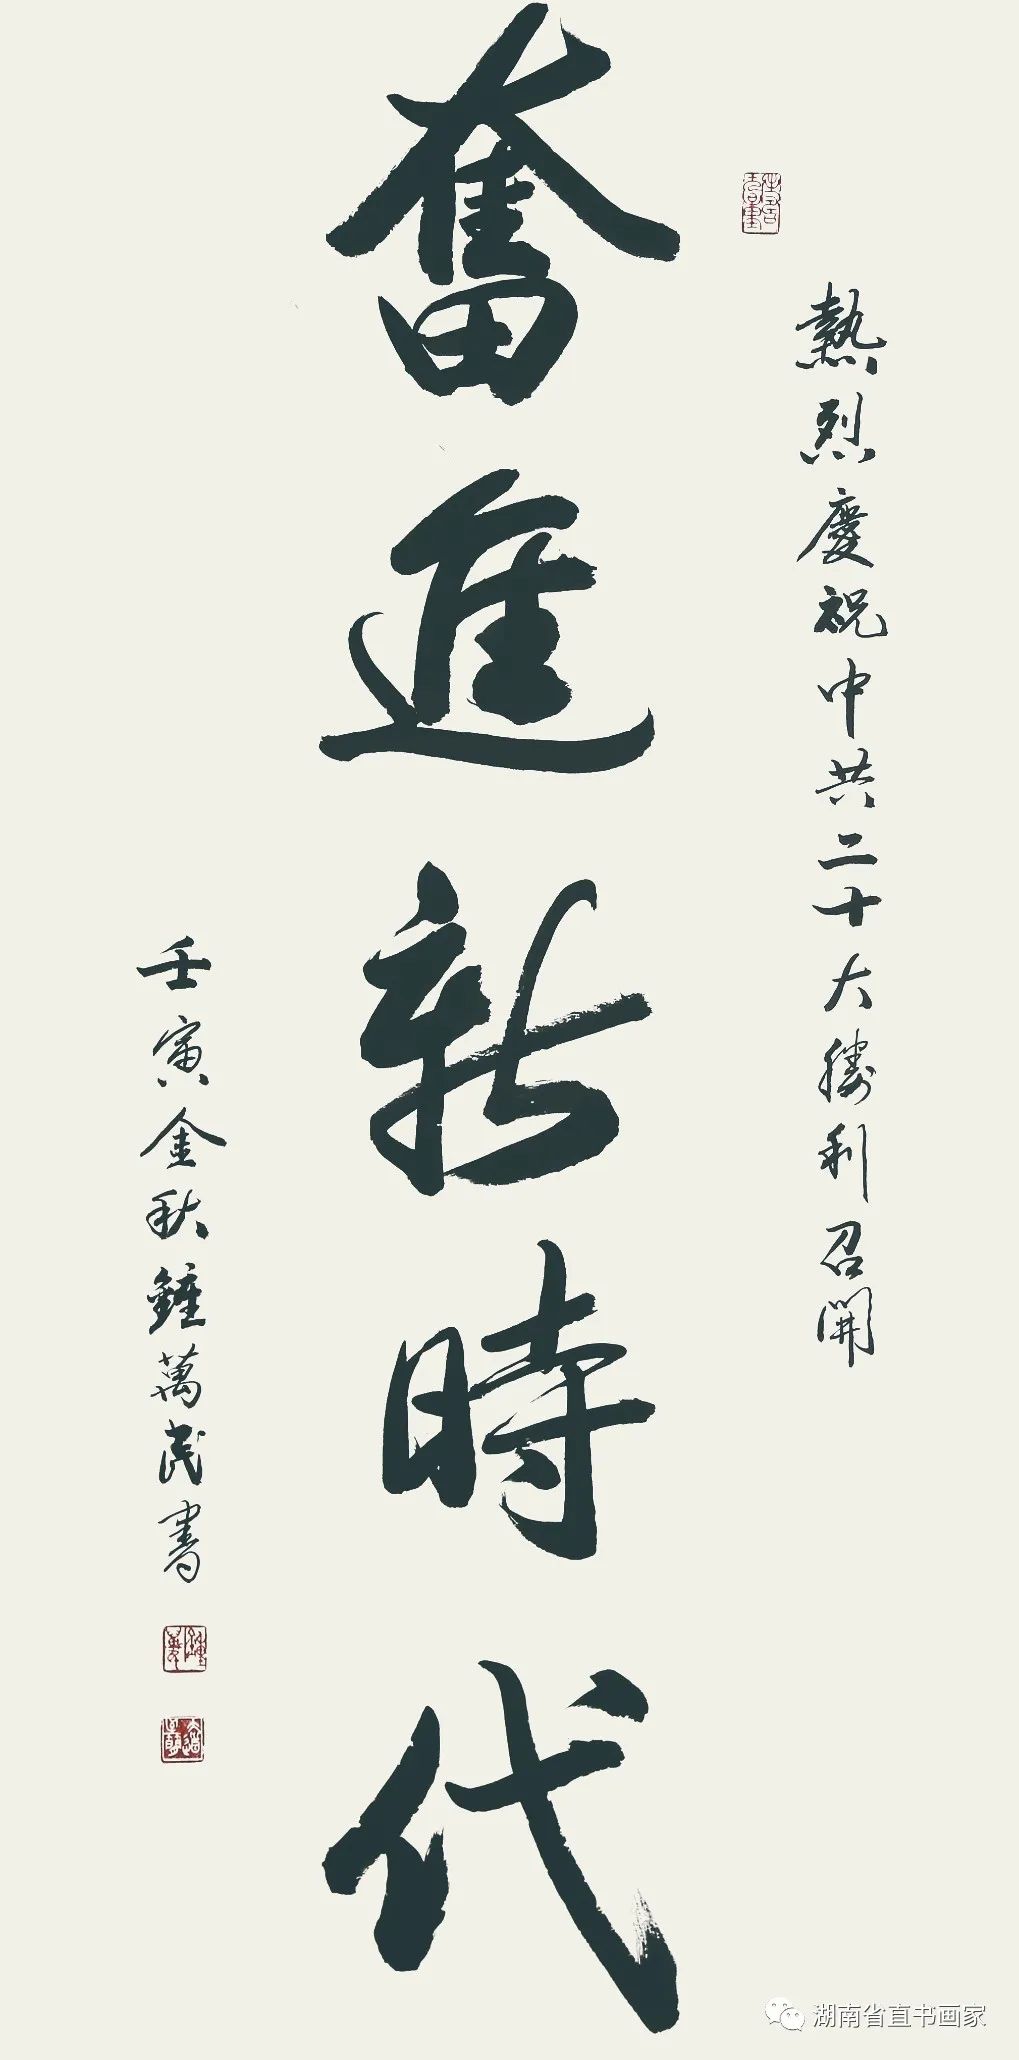 熱烈慶祝中共二十大勝利召開
奮進新時代
壬寅金秋鍾萬民書
湖南省直书画家